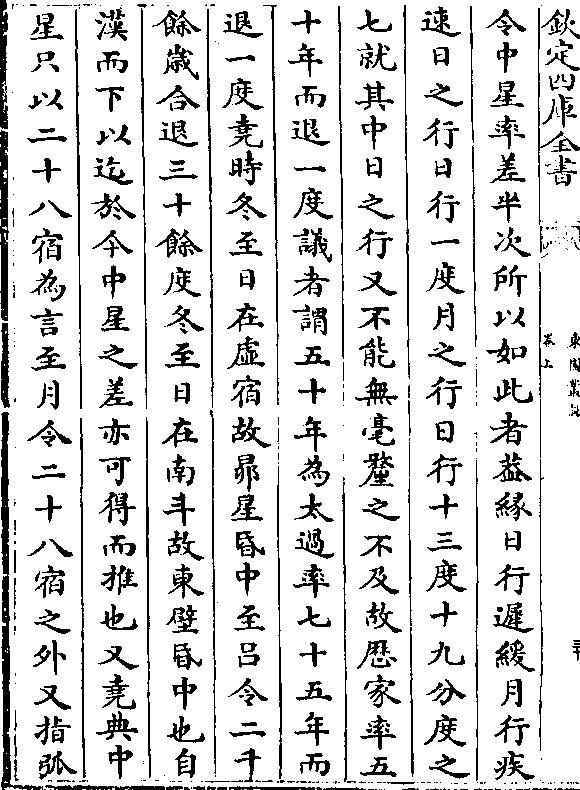 欽定四庫全書
東園叢說
卷上
三十
令中星率差半次所以如此者葢緣日行遲緩月行疾
速日之行日行一度月之行日行十三度十九分度之
七就其中日之行又不能無毫釐之不及故厯家率五
十年而退一度議者謂五十年為太過率七十五年而
退一度堯時冬至日在虛宿故昴星昏中至吕令二千
餘歲合退三十餘度冬至日在南斗故東壁昏中也自
漢而下以迄於今中星之差亦可得而推也又堯典中
星只以二十八宿為言至月令二十八宿之外又指弧